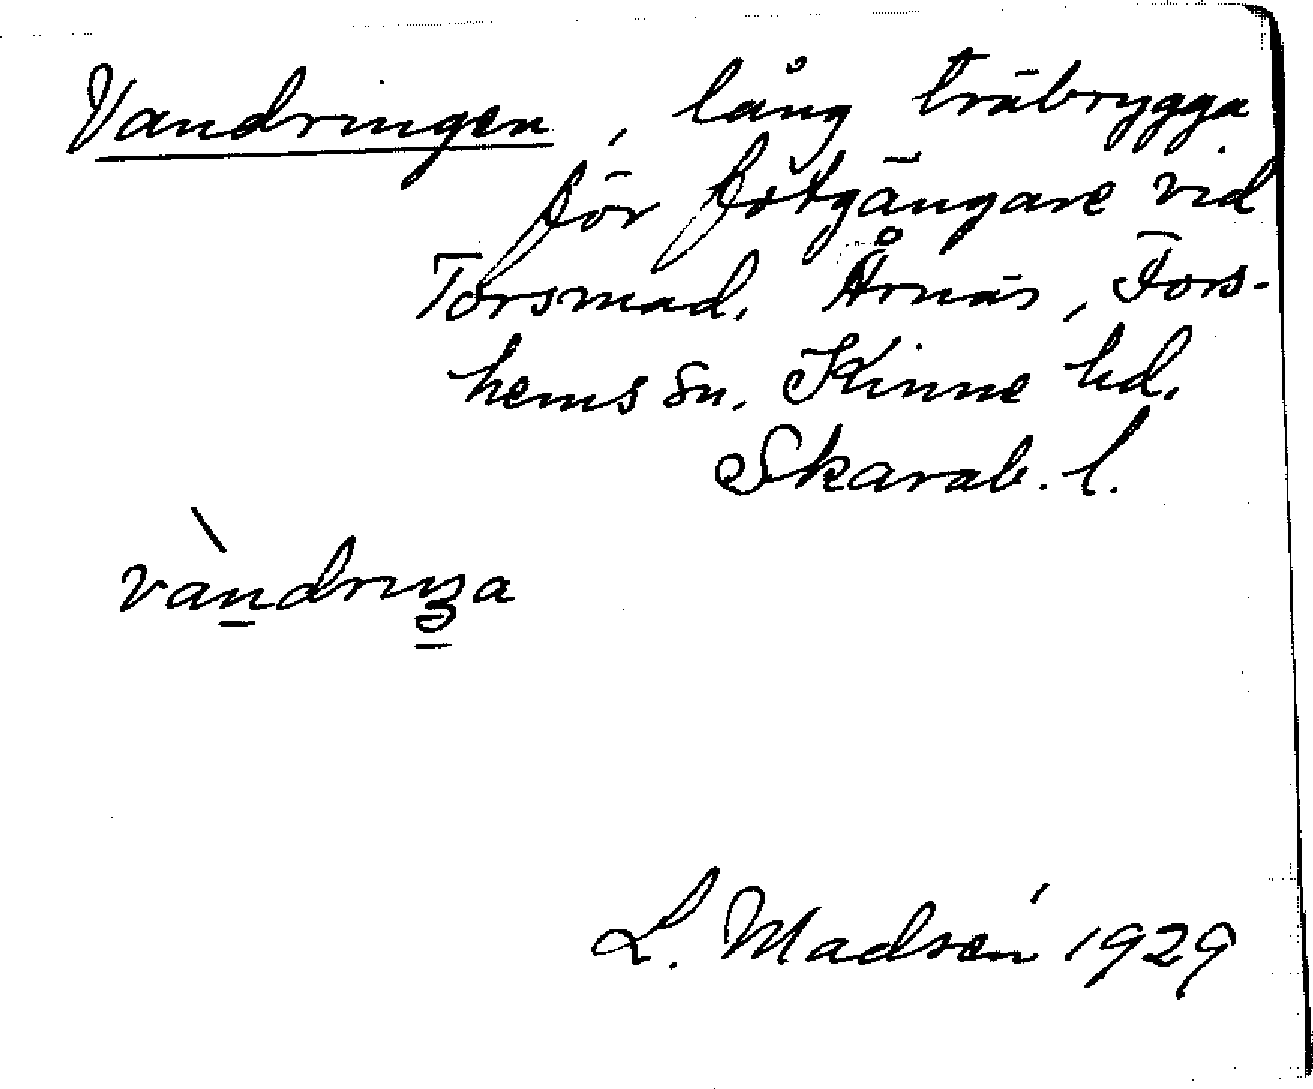 Vandringen, lång träbrygga
för fotgängare vid
Torsmad. Årnäs, Fors-
hems sn. Kinne hd.
Skarab. l.
L. Madsén 1929